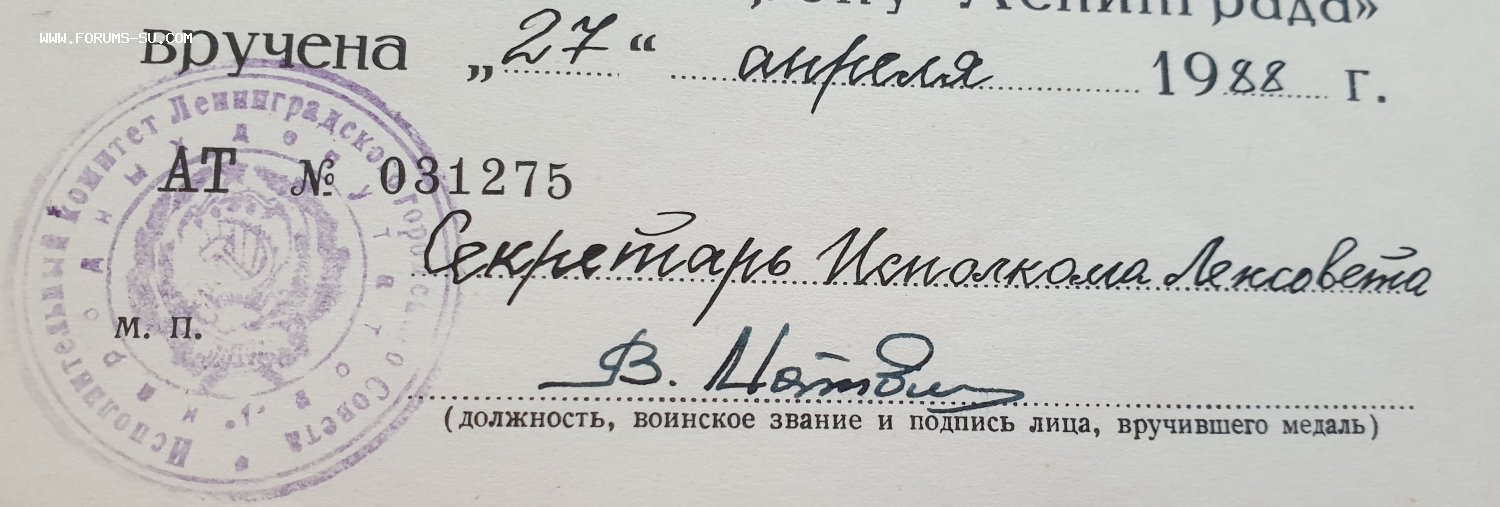 Ленинграда»
WWW.FORUMS-SU.COM
вручена „27“ апреля 1988 г.
АТ № 031275
Секретарь Исполкома Ленсовета
м. п.
В.
(должность, воинское звание и подпись лица, вручившего медаль)
Исполнительный Комитет Ленинградского городского Совета
народных депутатов